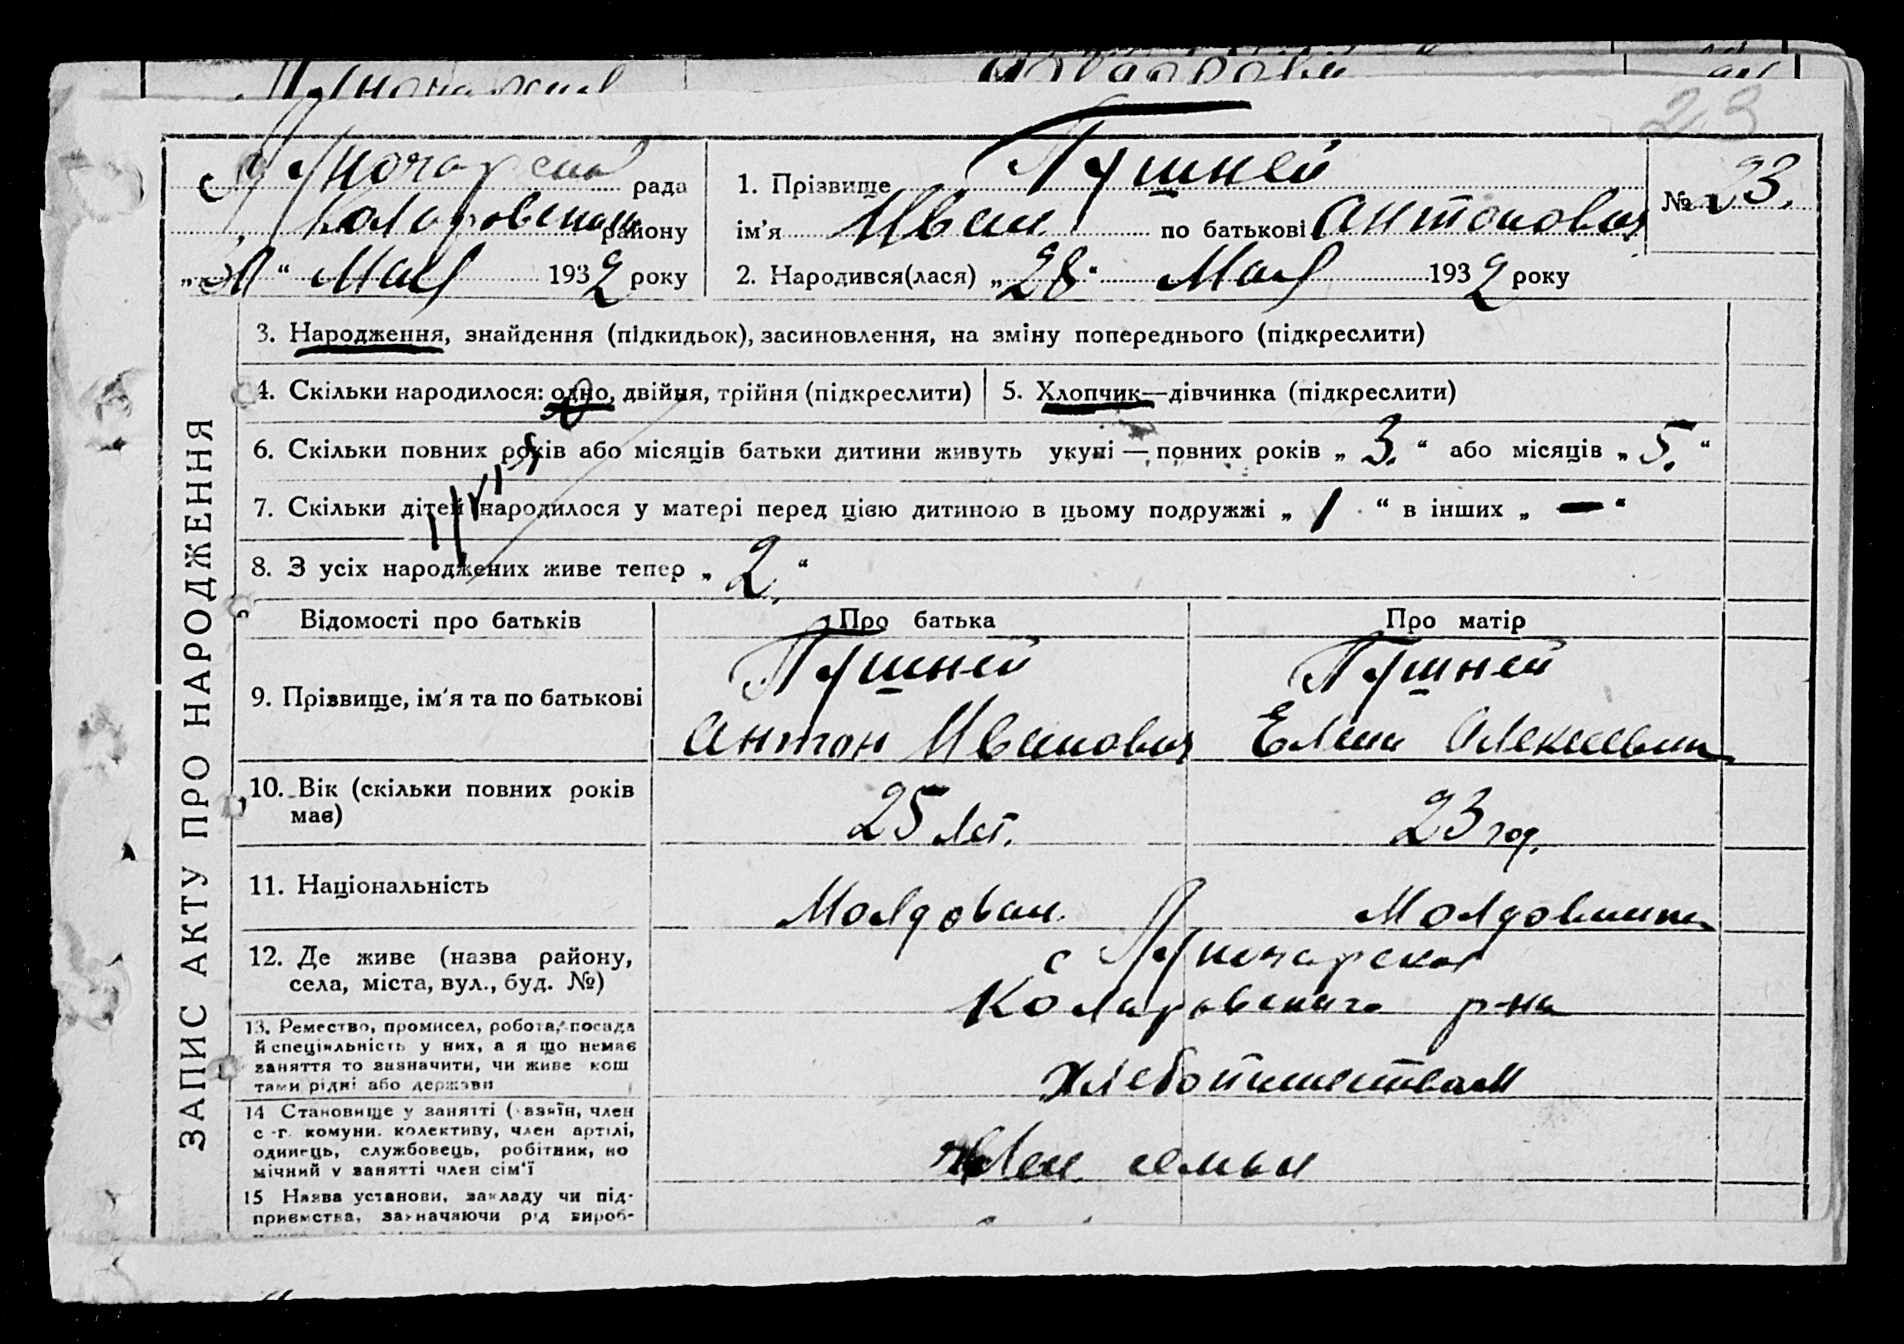 23
рада
1. Прізвище Пушней
№ 23.
Коларовський району
ім'я Иван по батькові Антонович
„31“ Мая 1932 року
2. Народився(лася) „28“ Мая 1932 року
3. Народження, знайдення (підкидьок), засиновлення, на зміну попереднього (підкреслити)
4. Скільки народилося: одно, двійня, трійня (підкреслити)
5. Хлопчик—дівчинка (підкреслити)
6. Скільки повних років або місяців батьки дитини живуть укупі — повних років „3.“ або місяців „5.“
7. Скільки дітей народилося у матері перед цією дитиною в цьому подружжі „1“ в інших „—“
8. З усіх народжених живе тепер „2.“
ЗАПИС АКТУ ПРО НАРОДЖЕННЯ
Відомості про батьків
Про батька
Про матір
9. Прізвище, ім'я та по батькові
Пушней
Антон Иванович
Пушней
Елена Алексеевна
10. Вік (скільки повних років
має)
25 лет.
23 год.
11. Національність
Молдован.
Молдованка
12. Де живе (назва району,
села, міста, вул., буд. №)
с
Коларовского р-на
13. Ремество, промисел, робота, посада
й спеціяльність у них, а я що немає
заняття то зазначити, чи живе кош
тами рідні або держави
Хлебопашеством
14 Становище у занятті (хазяїн, член
с.-г. комуни. колективу, член артілі,
одинець, службовець, робітник, по
мічний у занятті член сім'ї
член семьи
15 Назва установи, закладу чи під-
приємства, зазначаючи рід вироб-